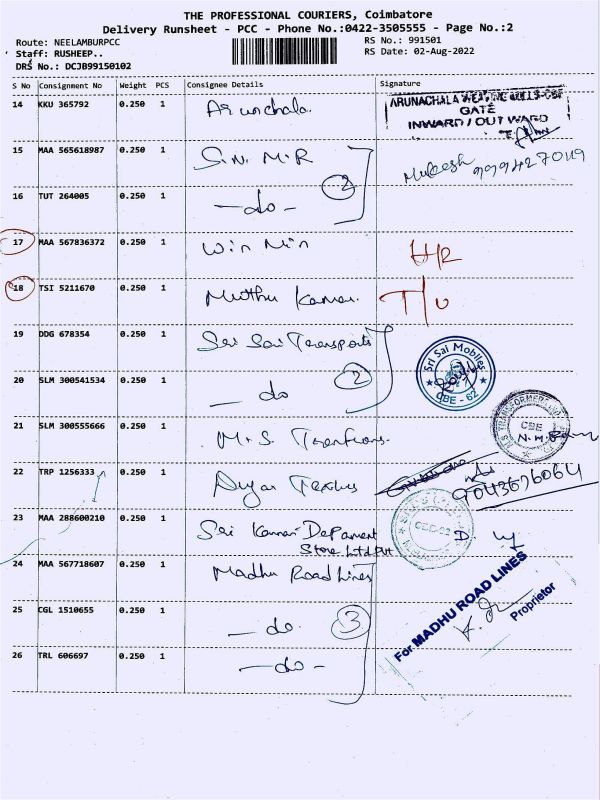 THE PROFESSIONAL COURIERS, Coimbatore
Delivery Runsheet - PCC - Phone No.:0422-3505555 - Page No.:2
Route: NEELAMBURPCC
RS No.: 991501
Staff: RUSHEEP..
RS Date: 02-Aug-2022
DRS No.: DCJB99150102
S No Consignment No Weight PCS Consignee Details Signature
14 KKU 365792 0.250 1 Arunchala.
GATE
INWARD / OUT WARD
15 MAA 565618987 0.250 1 S.N. M.R
2
16 TUT 264005 0.250 1 - do -
17 MAA 567836372 0.250 1 Win Min
18 TSI 5211670 0.250 1 Muthu Kumar. T/O
19 DDG 678354 0.250 1 Sri Sai Transports
Sri Sai Mobiles
CBE - 62
20 SLM 300541534 0.250 1 - do 2
21 SLM 300555666 0.250 1 M.S.
CBE
22 TRP 1256333 0.250 1
9043676064
23 MAA 288600210 0.250 1 Sri Kannan Depament
Store Ltd Pvt
24 MAA 567718607 0.250 1 Madhu Road Lines
For MADHU ROAD LINES
Proprietor
25 CGL 1510655 0.250 1 - do - 3
26 TRL 606697 0.250 1 - do -